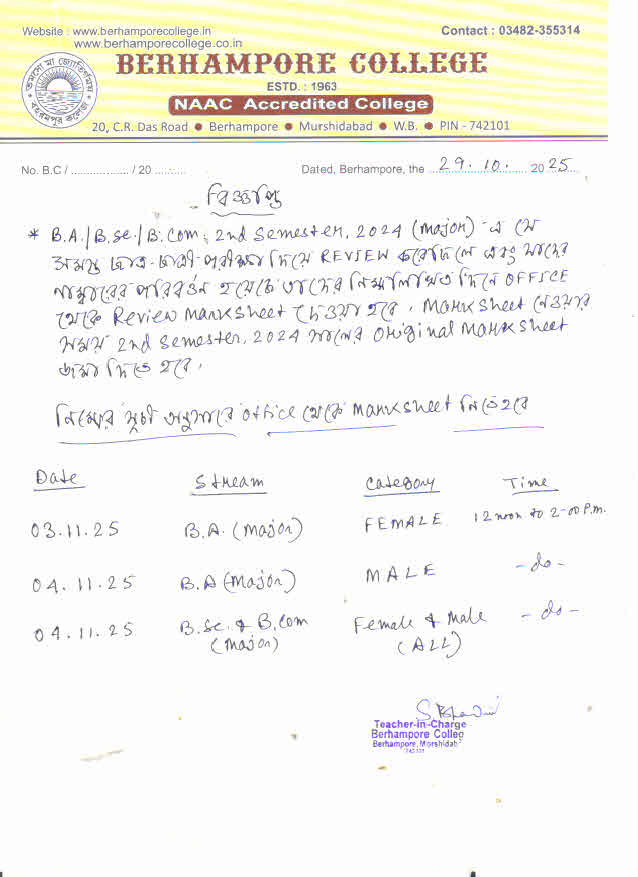 Website : www.berhamporecollege.in
www.berhamporecollege.co.in
Contact : 03482-355314
BERHAMPORE COLLEGE
ESTD. : 1963
NAAC Accredited College
20, C.R. Das Road ● Berhampore ● Murshidabad ● W.B. ● PIN - 742101
No. B.C / .................... / 20 ..........
Dated, Berhampore, the ...29.10. 2025...
বিজ্ঞপ্তি
* B.A./B.Sc./B.Com, 2nd Semester, 2024 (Major) -এ যে
সমস্ত ছাত্র-ছাত্রী পরীক্ষা দিয়ে REVIEW করেছিলে এবং যাদের
নাম্বারের পরিবর্তন হয়েছে তাদের নিম্নলিখিত দিনে OFFICE
থেকে Review Marksheet দেওয়া হবে। Marksheet নেওয়ার
সময় 2nd Semester, 2024 সালের Original Marksheet
জমা দিতে হবে।
নিম্নের সূচী অনুসারে office থেকে Marksheet নিতে হবে
Date Stream Category Time
03.11.25 B.A. (Major) FEMALE 12 noon to 2-00 P.m.
04.11.25 B.A (Major) MALE - do -
04.11.25 B.Sc. & B.Com Female & Male - do -
(Major) (ALL)
Teacher-in-Charge
Berhampore College
Berhampore, Murshidabad
742101